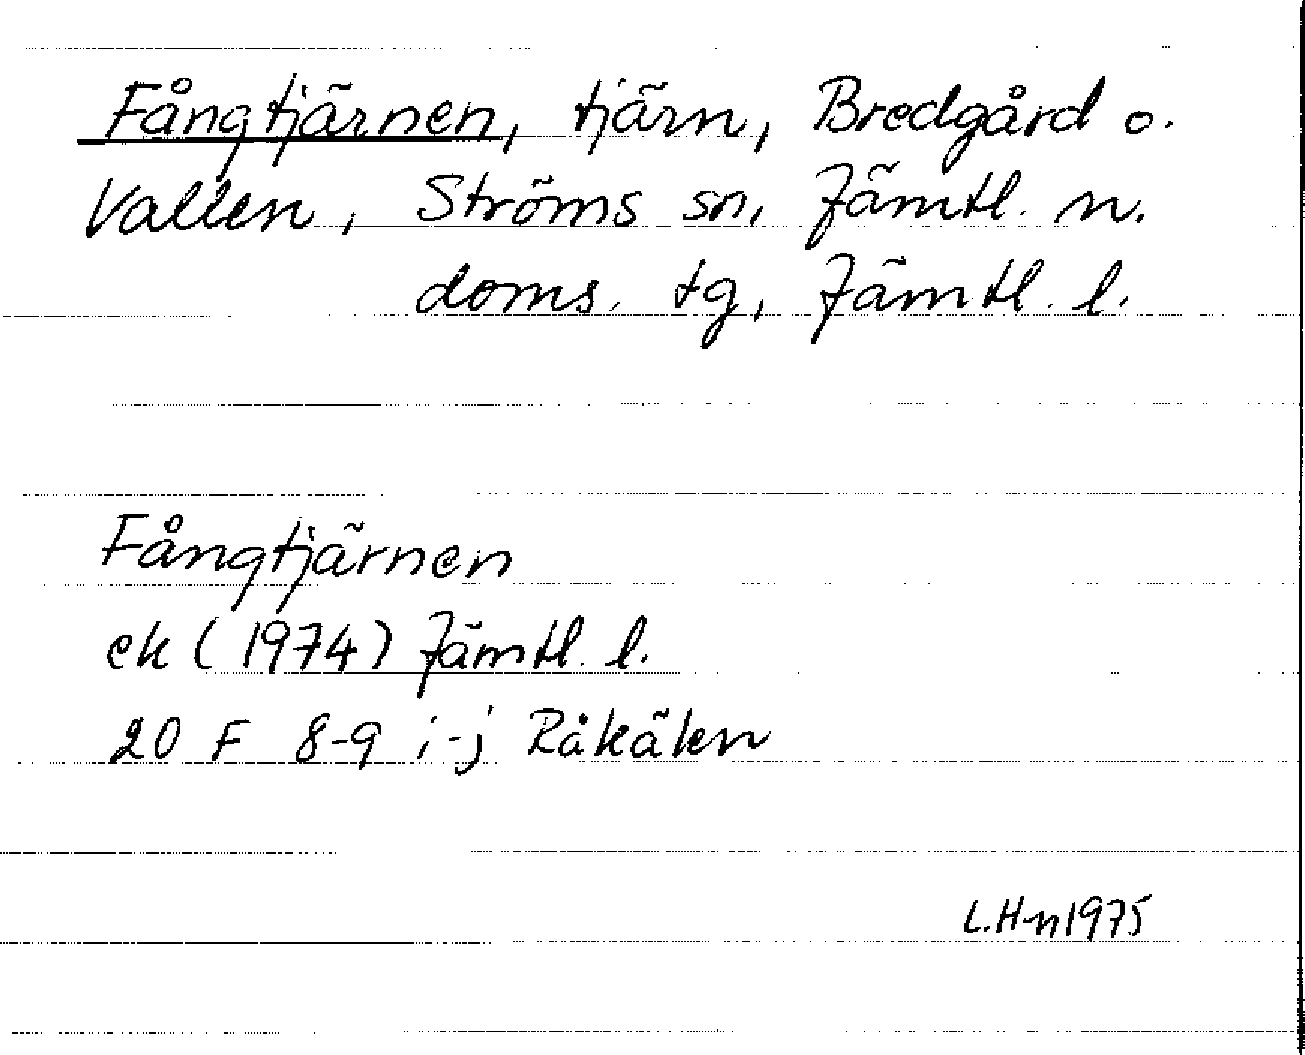 Fångtjärnen, tjärn, Bredgård o.
Vallen, Ströms sn, Jämtl. n.
doms. tg, Jämtl. l.
Fångtjärnen
ek (1974) Jämtl. l.
20 F 8-9 i-j Råkälen
L.H-n 1975